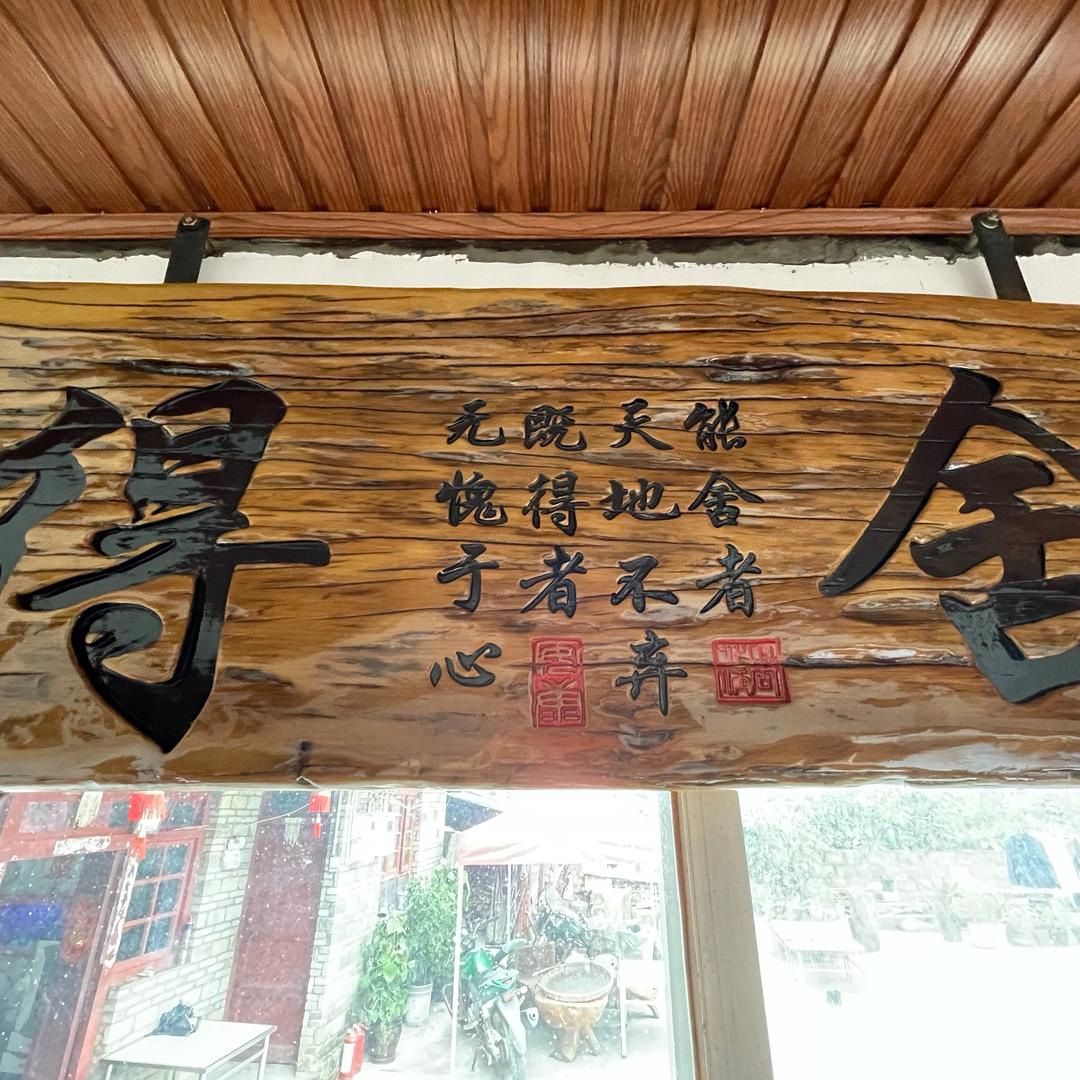 舍
能舍者
天地不弃
既得者
无愧于心
得